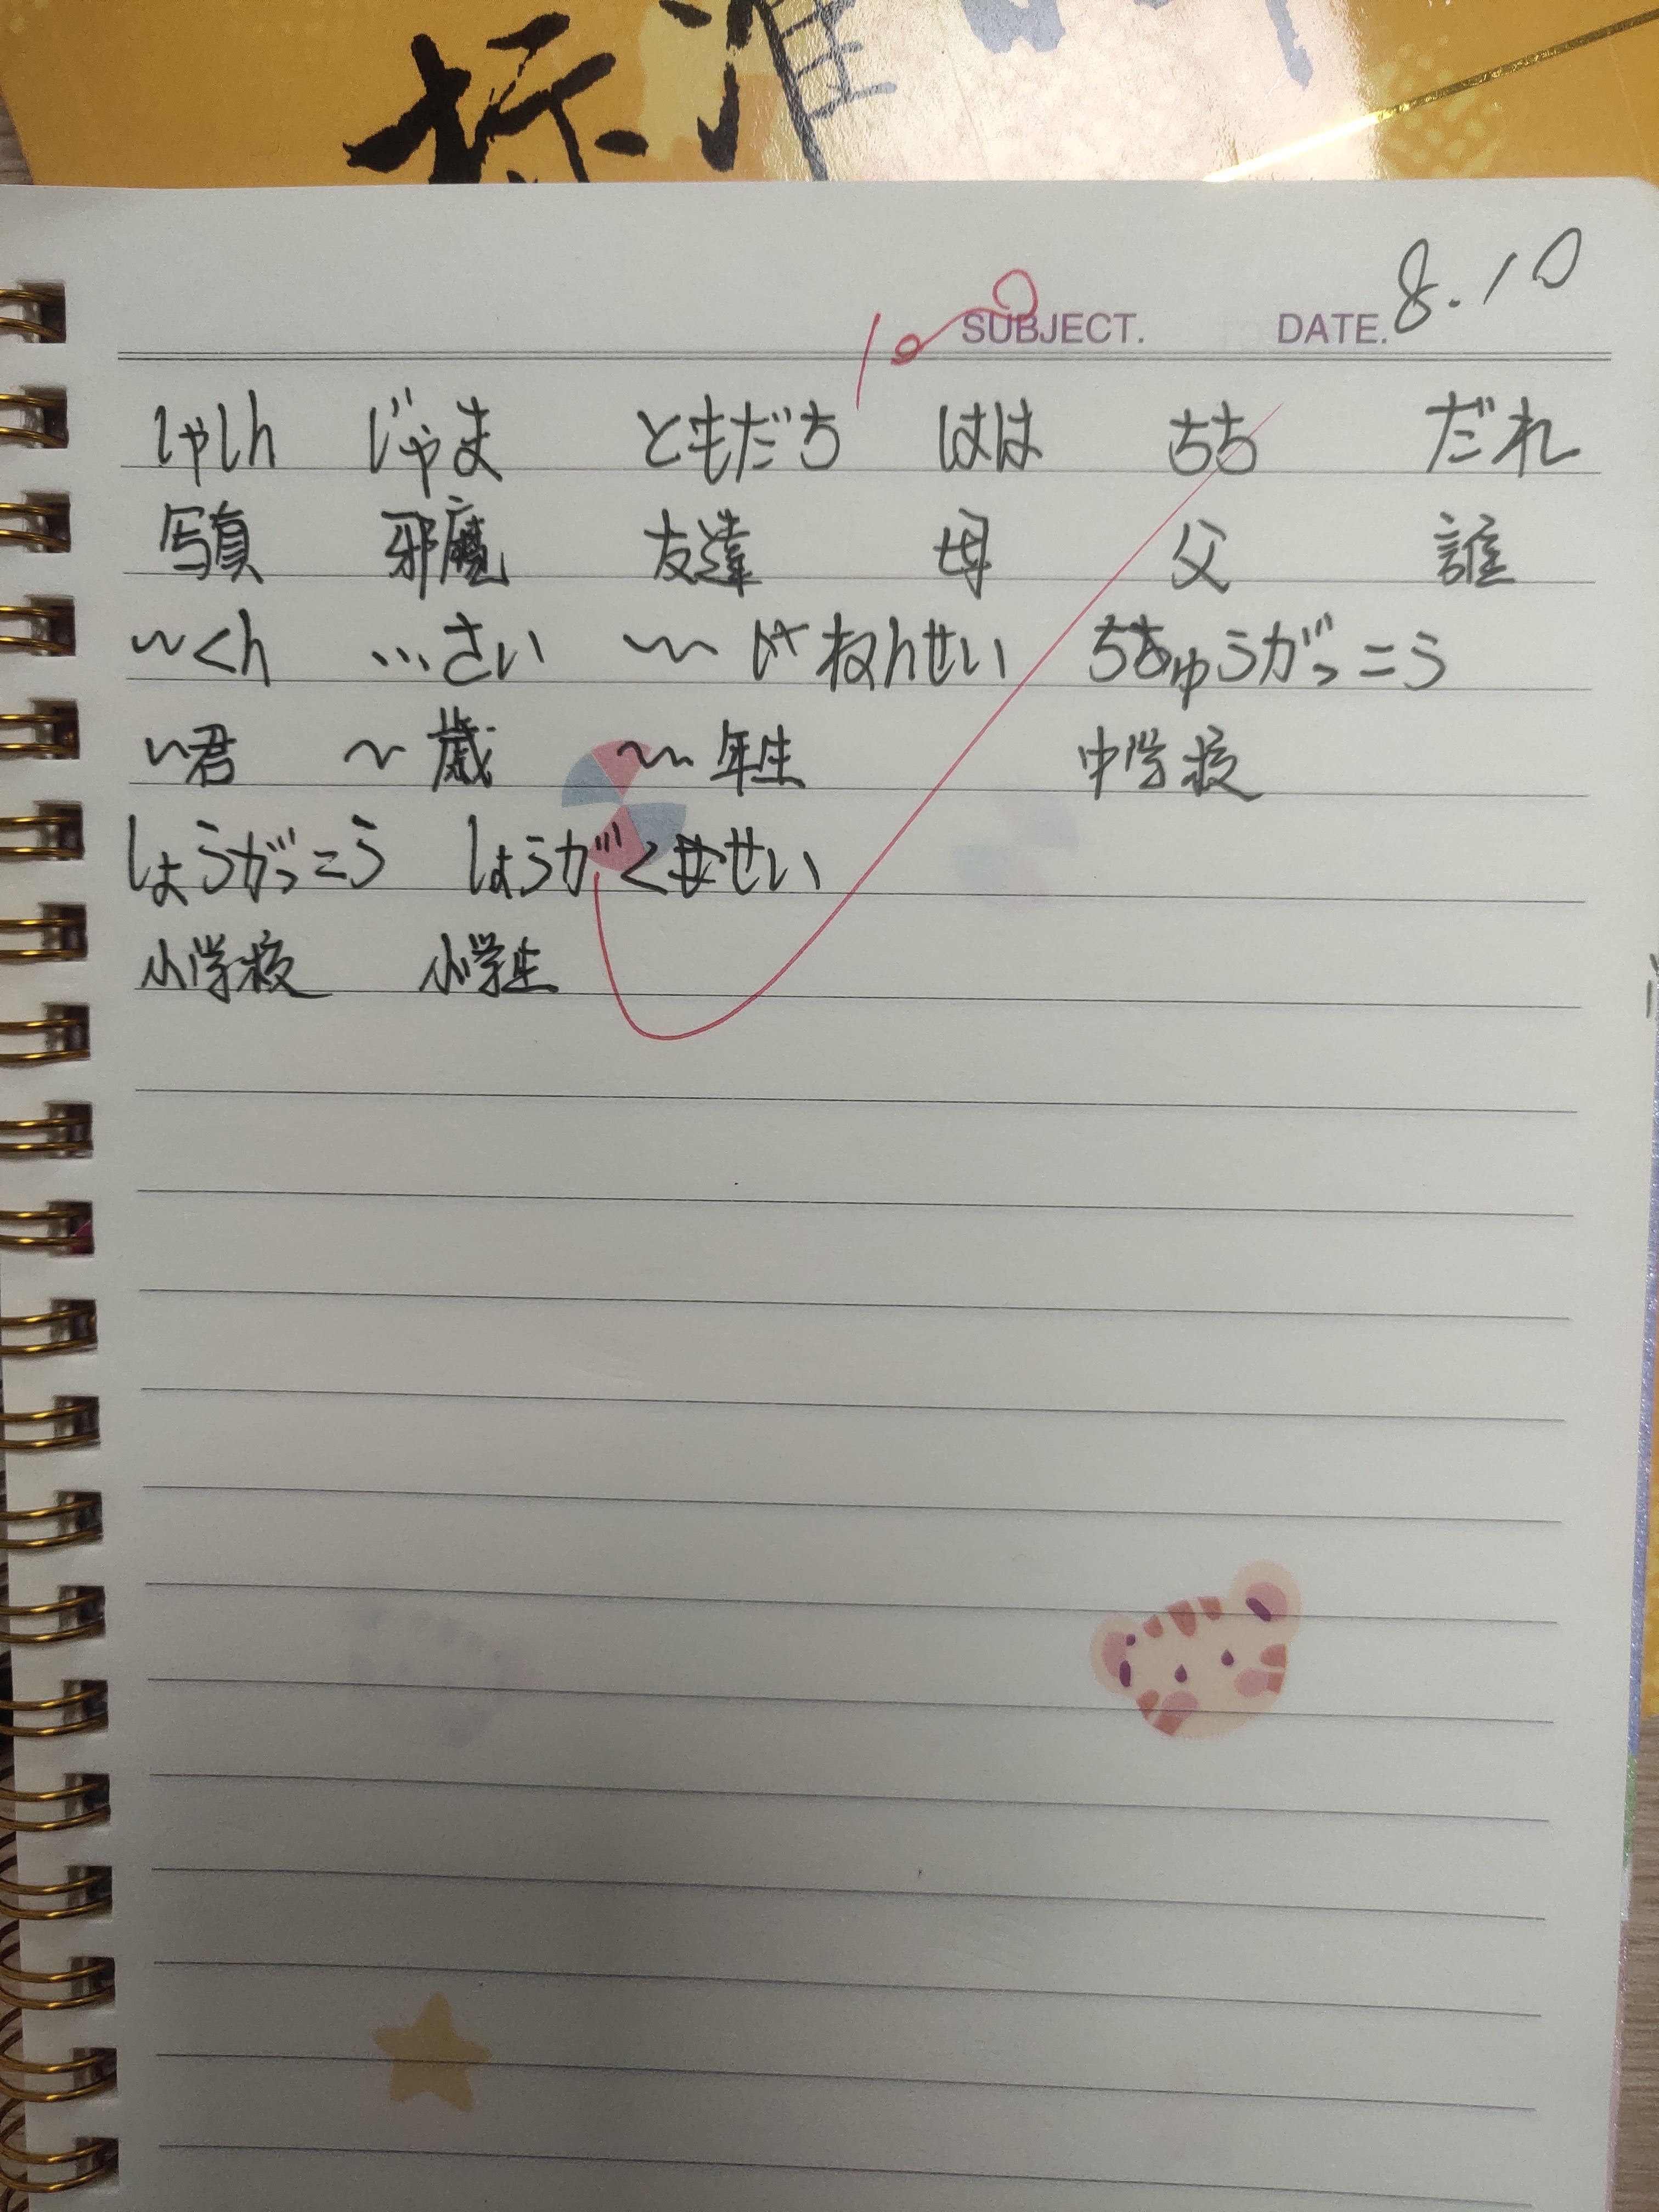 标准
SUBJECT. DATE. 8.10
100
しゃしん じゃま ともだち はは ちち だれ
写真 邪魔 友達 母 父 誰
～くん …さい ～ ねんせい ちゅうがっこう
～君 ～歳 ～年生 中学校
しょうがっこう しょうがくせい
小学校 小学生